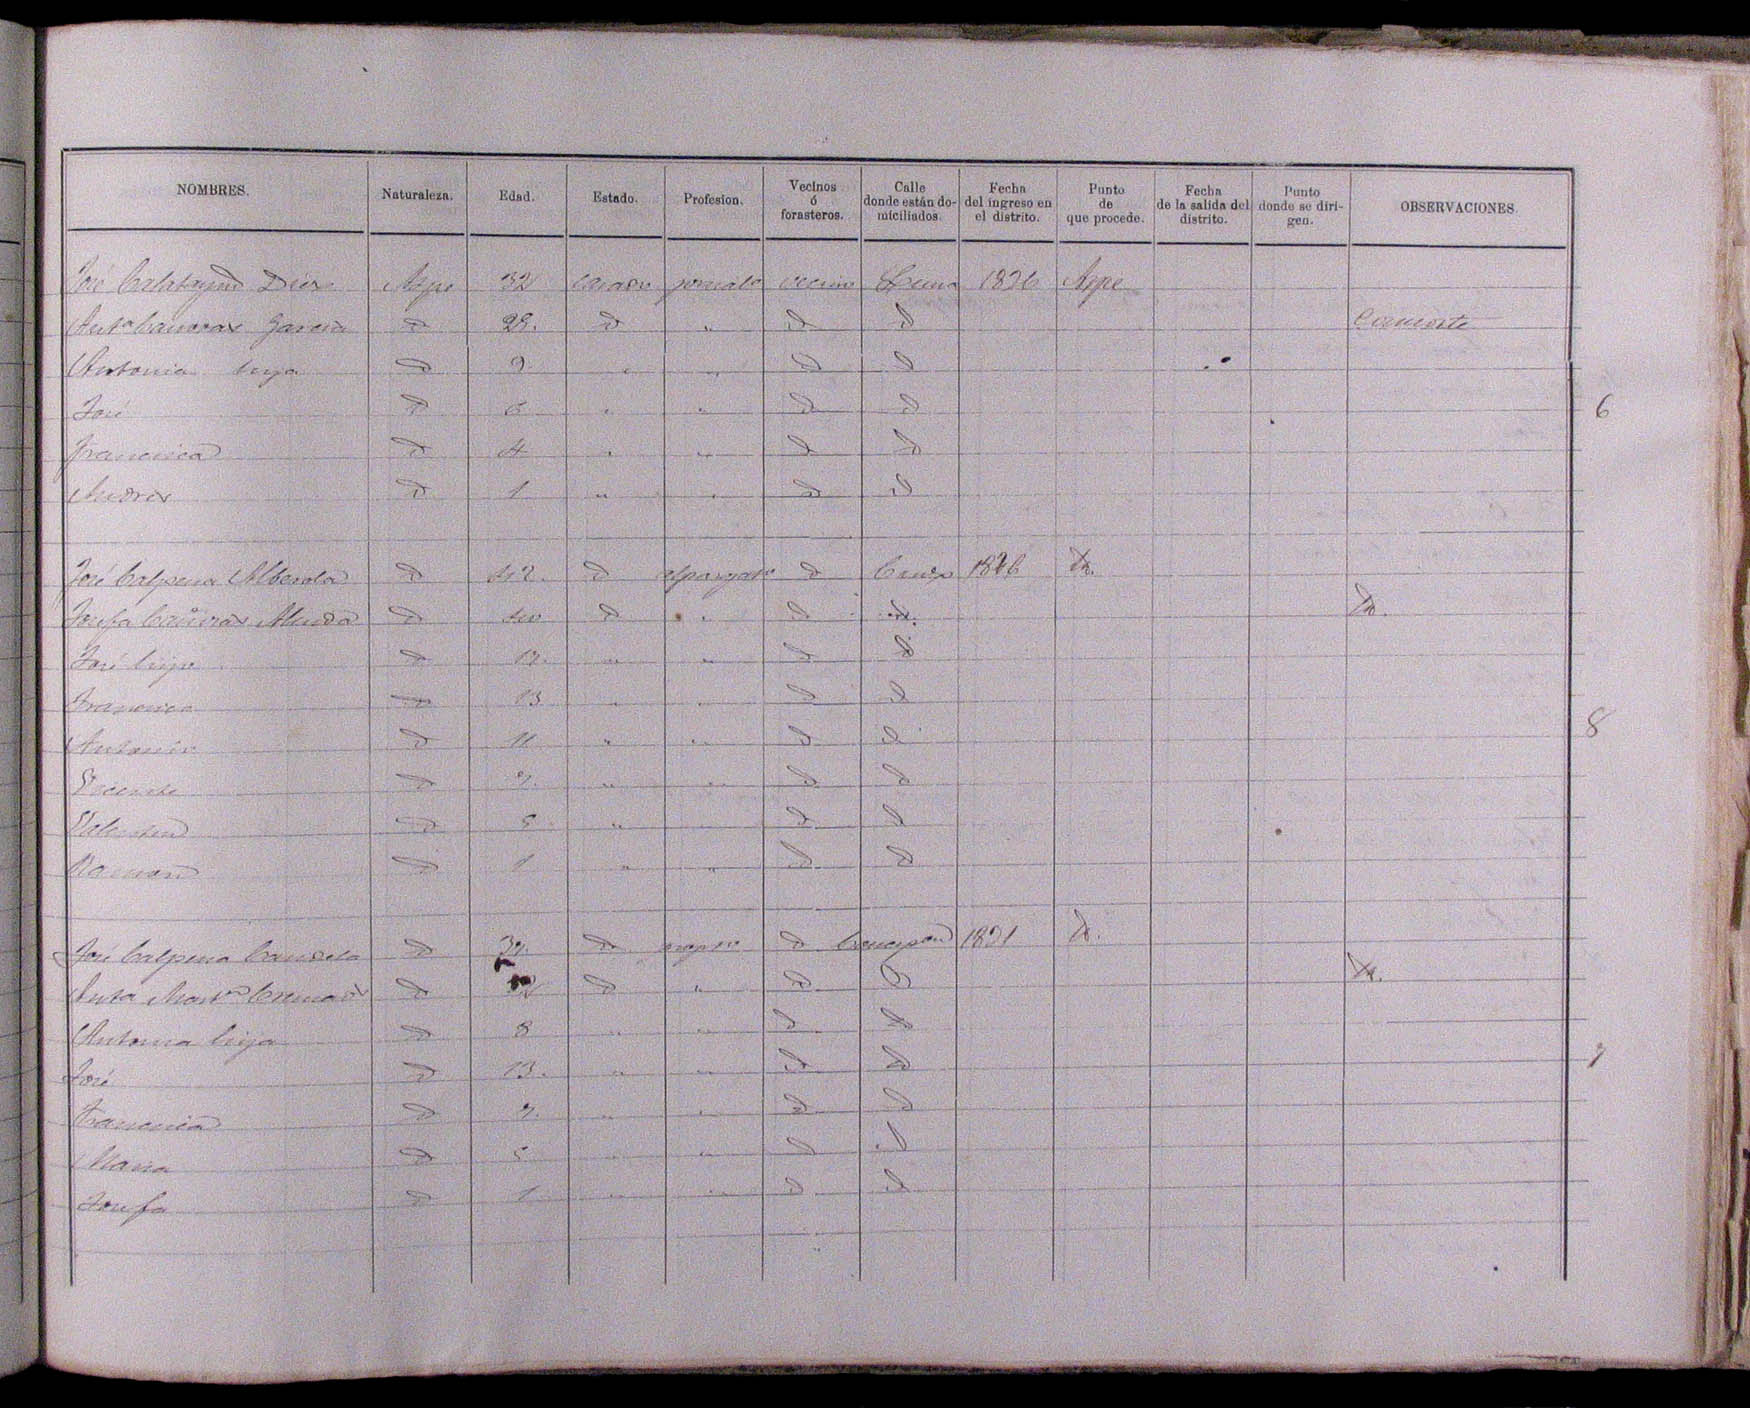 NOMBRES. Naturaleza. Edad. Estado. Profesion. Vecinos ó forasteros. Calle donde están domiciliados. Fecha del ingreso en el distrito. Punto de que procede. Fecha de la salida del distrito. Punto donde se dirigen. OBSERVACIONES.
José Calatayud Aspe 32 casado jornalo vecino 1826 Aspe
Anta Canovas Garcia d 28. d " d d
Antonia hija d 9 " " d d
José d 6 " " d d
6
Francisca d 4 " " d d
Andres d 1 " " d d
José Calpena Alberola d 42. d alpargato d Cruz 18 6 Id.
Josefa Cañovas d 40 d " d id. Id.
José hijo d 17. " " d d
Francisca d 13 " " d d
Antonio d 11 " " d d
8
Vicente d 7. " " d d
Valentin d 5 " " d d
Ramon d 1 " " d d
José Calpena Candela d 37. d d Concepcion 1831 Id.
Anta d d " d d Id.
Antonia hija d 8 " " d d
José d 13. " " d d
7
Francisca d 7. " " d d
Maria d 5 " " d d
Josefa d 1 " " d d